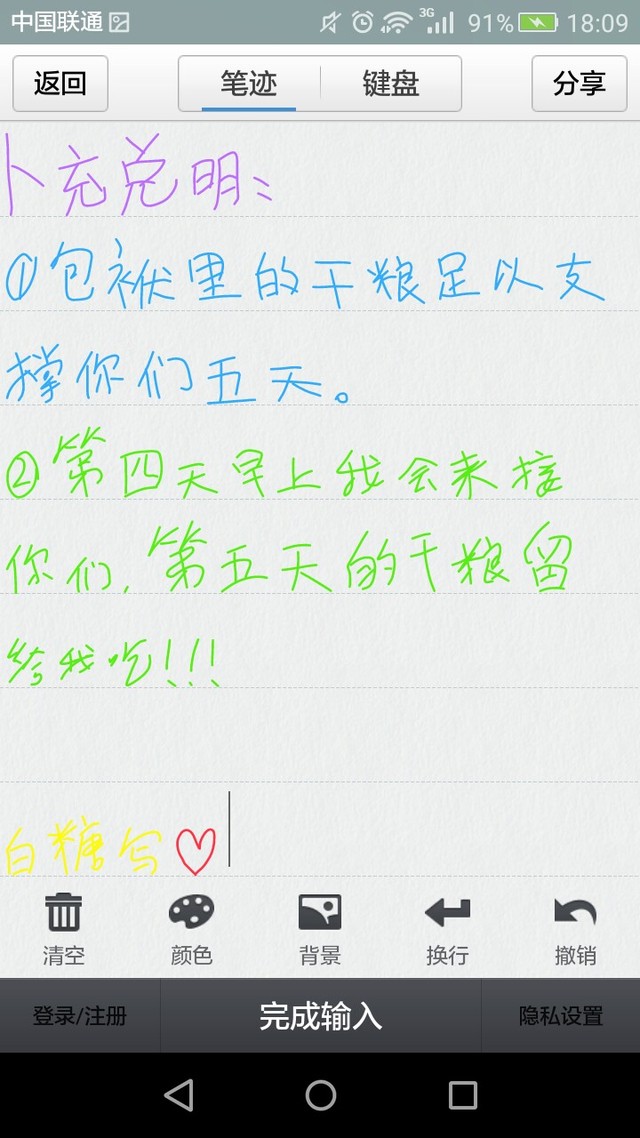 中国联通 3G 91% 18:09
返回 笔迹 键盘 分享
卜充说明:
①包袱里的干粮足以支
撑你们五天。
②第四天早上我会来接
你们,第五天的干粮留
给我吃!!!
白糖写♡
清空 颜色 背景 换行 撤销
登录/注册 完成输入 隐私设置